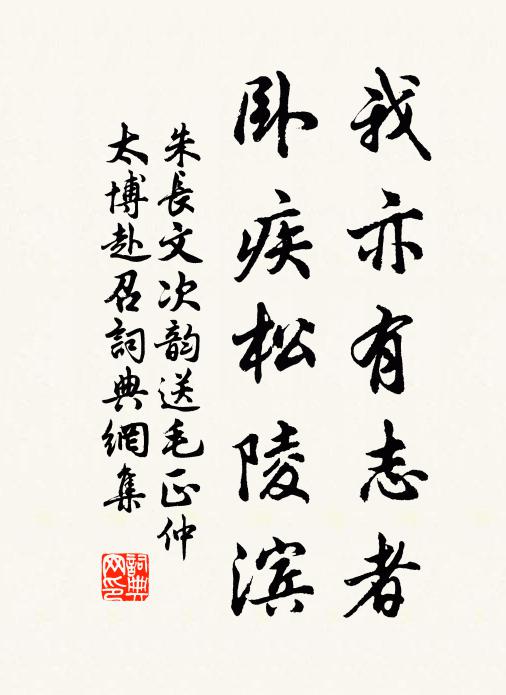 我亦有志者
卧疾松陵滨
朱長文次韵送毛正仲
太博赴召詞典網集
詞典网印